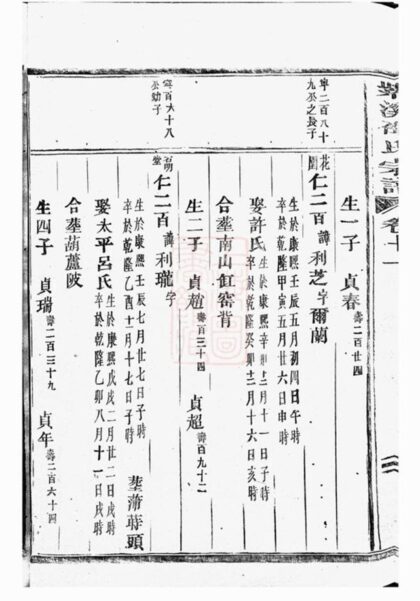 氏宗譜
卷十一
生一子 貞春壽二百廿四
寧二百八十九公之長子
仁二百諱利芝字爾蘭
生於康熙壬辰五月初四日午時
卒於乾隆甲寅五月廿六日申時
娶許氏生於康熙辛卯十二月十一日子時
卒於乾隆癸卯十二月十六日亥時
合塟南山缸窑背
生二子 貞趙壽百三十四 貞超壽百九十二
寧百六十八公幼子
仁二百諱利瓏字
生於康熙壬辰七月廿七日子時
卒於乾隆乙酉十一月十七日子時 塟蒲蒔頭
娶太平呂氏生於康熙戊戌二月廿二日戌時
卒於乾隆乙卯八月十一日戌時
合塟葫蘆陂
生四子 貞瑞壽二百三十九 貞年壽二百六十四